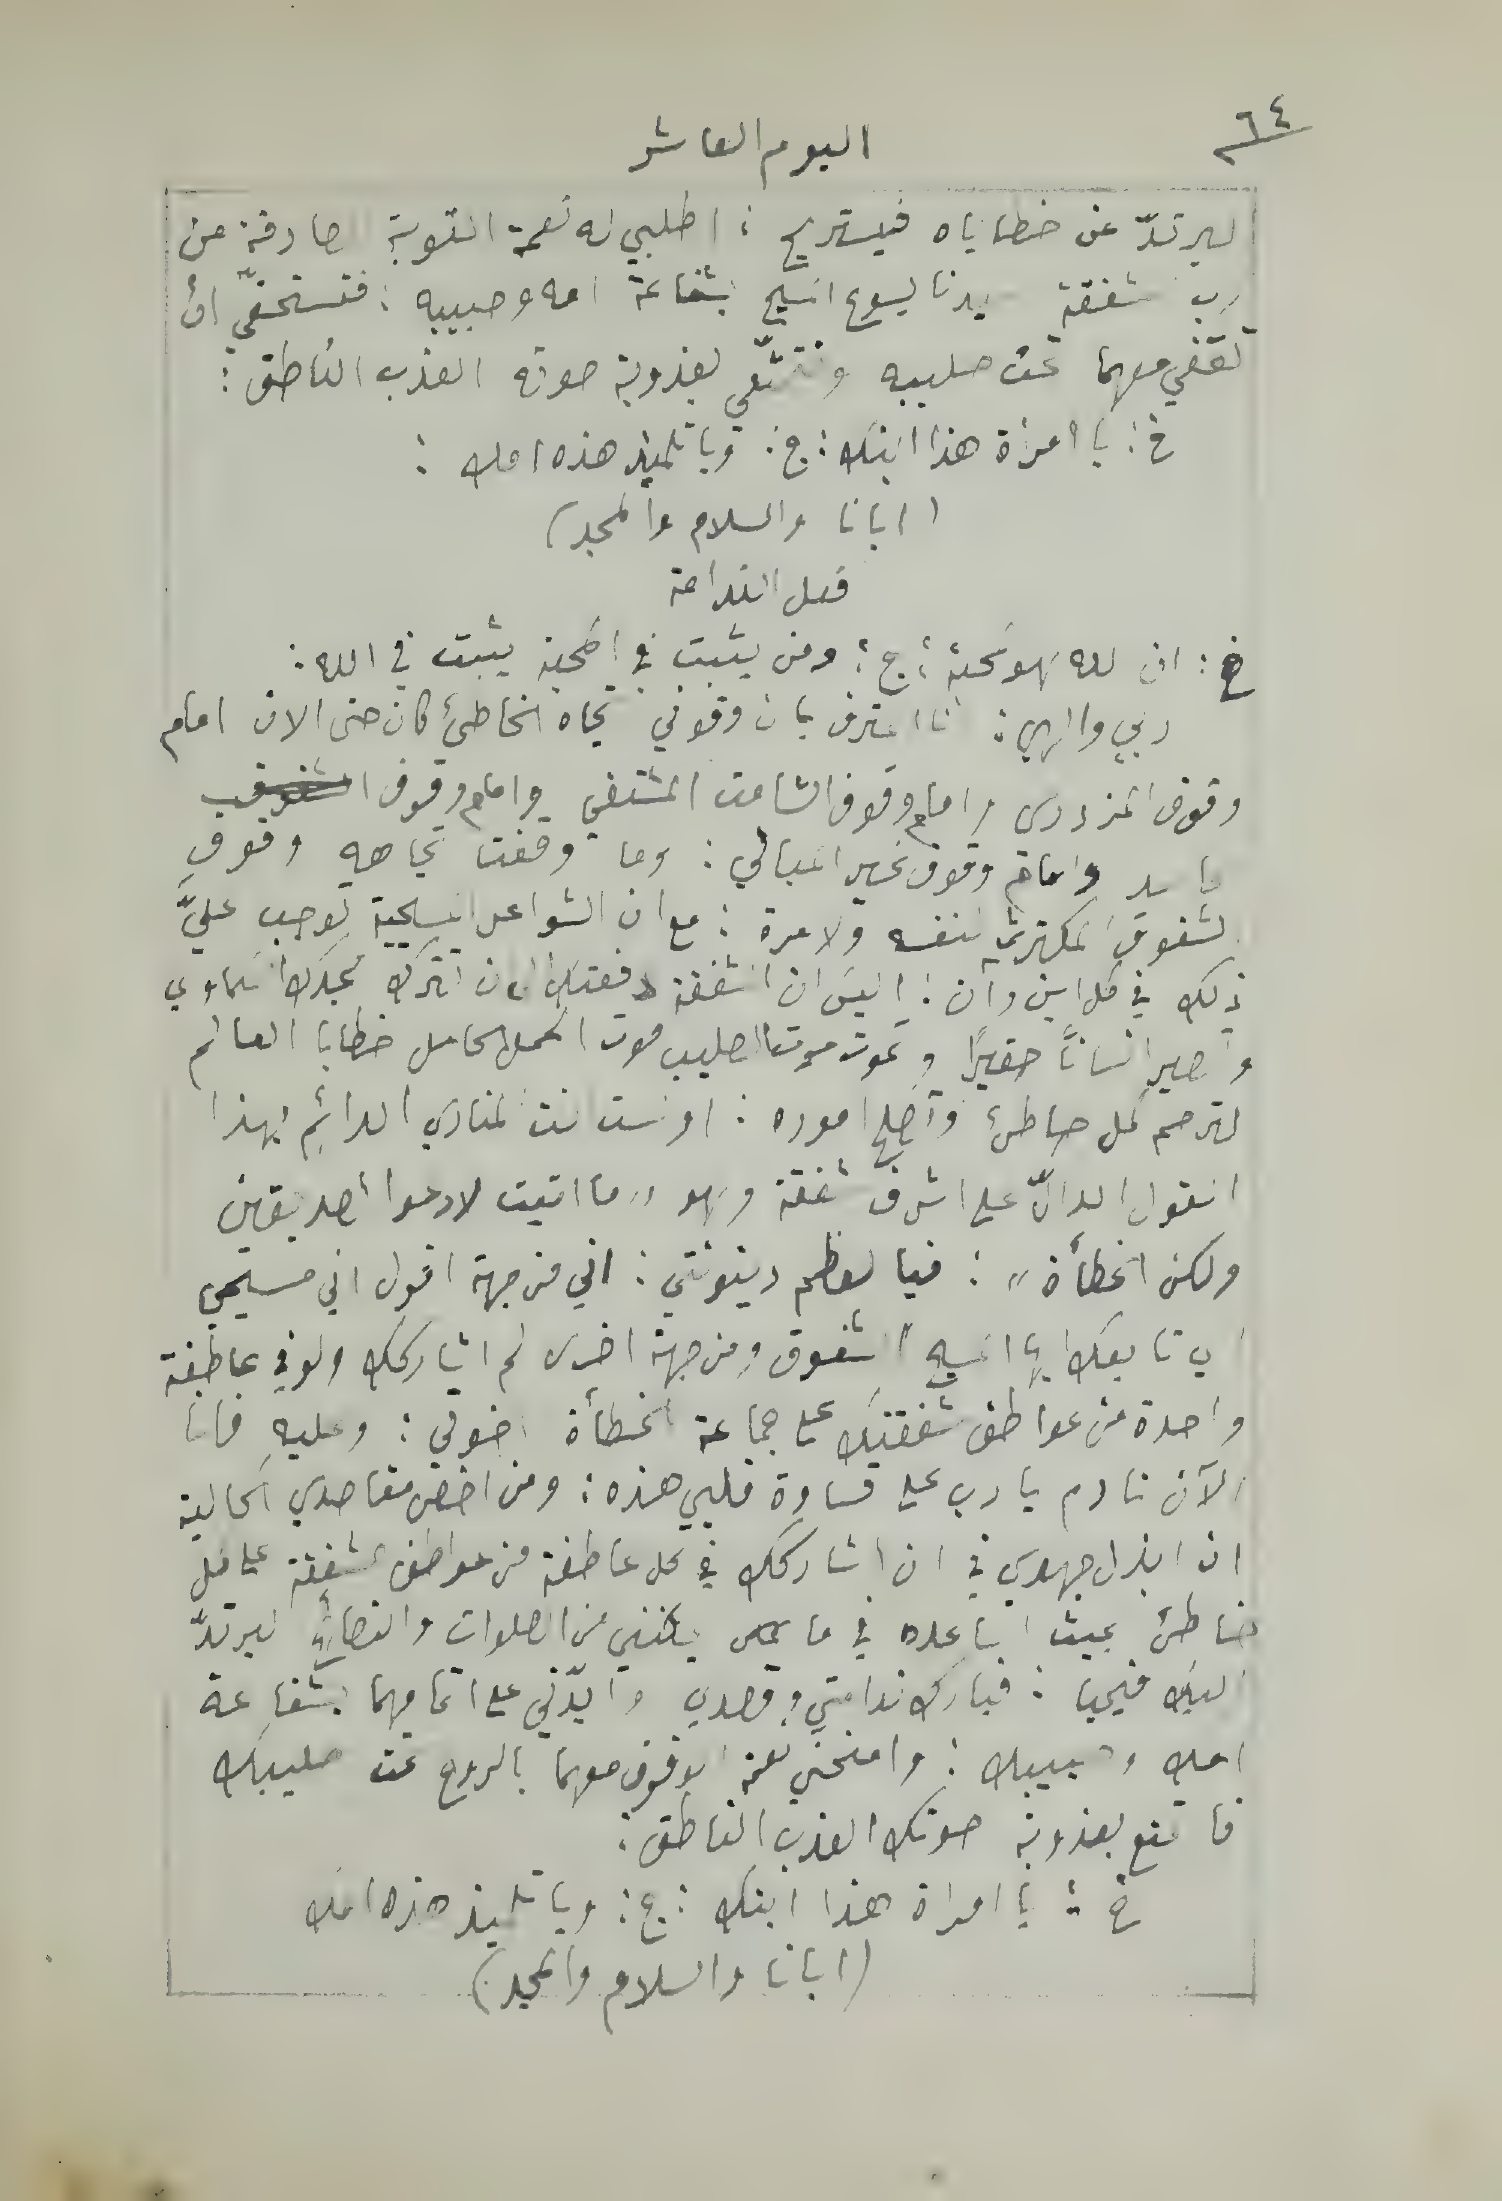 ٦٤
اليوم العاشر
ليرتدّ عن خطاياه فيستريح : اطلبي له نعمة التوبة الصادقة من
رب الشفقة سيدنا يسوع المسيح بشفاعة امه وحبيبه : فتستحقّي ان
تقفي معهما تحت صليبه وتتمتّعي بعذوبة صوته العذب الناطق :
خ : يا امرأة هذا ابنك : ج : ويا تلميذ هذه امك :
( ابانا والسلام والمجد )
فعل الندامة
خ : ان الله لهو محبة : ج : ومن يثبت في المحبة يثبت في الله :
ربي والهي : انا اعترف بان وقوفي تجاه الخاطئ كان حتى الان امام
وقوف المزدري وامام وقوف الشامت المشتفي وامام وقوف
وامام وقوف غير المبالي : وما وقفت تجاهه وقوف
الشفوق المكترث لنفسه ولا مرة : مع ان الشواعر المسيحية توجب عليَّ
ذلك في كل اين وآن : اليس ان الشفقة دفعتك ان تترك مجدك السماوي
وتصير انساناً حقيرًا وتموت موت الصليب موت الحمل الحامل خطايا العالم
لترحم كل خاطئ وتصلح اموره : اولست انت المنادي الدائم بهذا
القول الدالّ على اشرف شفقة وهو " ما اتيت لادعوا الصديقين
ولكن الخطأة " : فيا لعظم دينونتي : اني من جهة اقول اني مسيحي
اي تابعك ايها المسيح الشفوق ومن جهة اخرى لم اشاركك ولو في عاطفة
واحدة من عواطف شفقتك على جماعة الخطأة اخوتي : وعليه فانا
الآن نادم يا رب على قساوة قلبي هذه : ومن اخص مقاصدي الحالية
ان ابذل جهدي في ان اشاركك في كل عاطفة من عواطف الشفقة على كل
خاطئ بحيث اساعده في ما يمكنني من الصلوات والنصائح ليرتدّ
اليك فيحيا : فبارك ندامتي وقصدي وايّدني على اتمامهما بشفاعة
امك وحبيبك : وامنحني نعمة الوقوف معهما بالروح تحت صليبك
فاتمتع بعذوبة صوتك العذب الناطق :
خ : يا امراة هذا ابنك : ج : ويا تلميذ هذه امك
( ابانا والسلام والمجد )